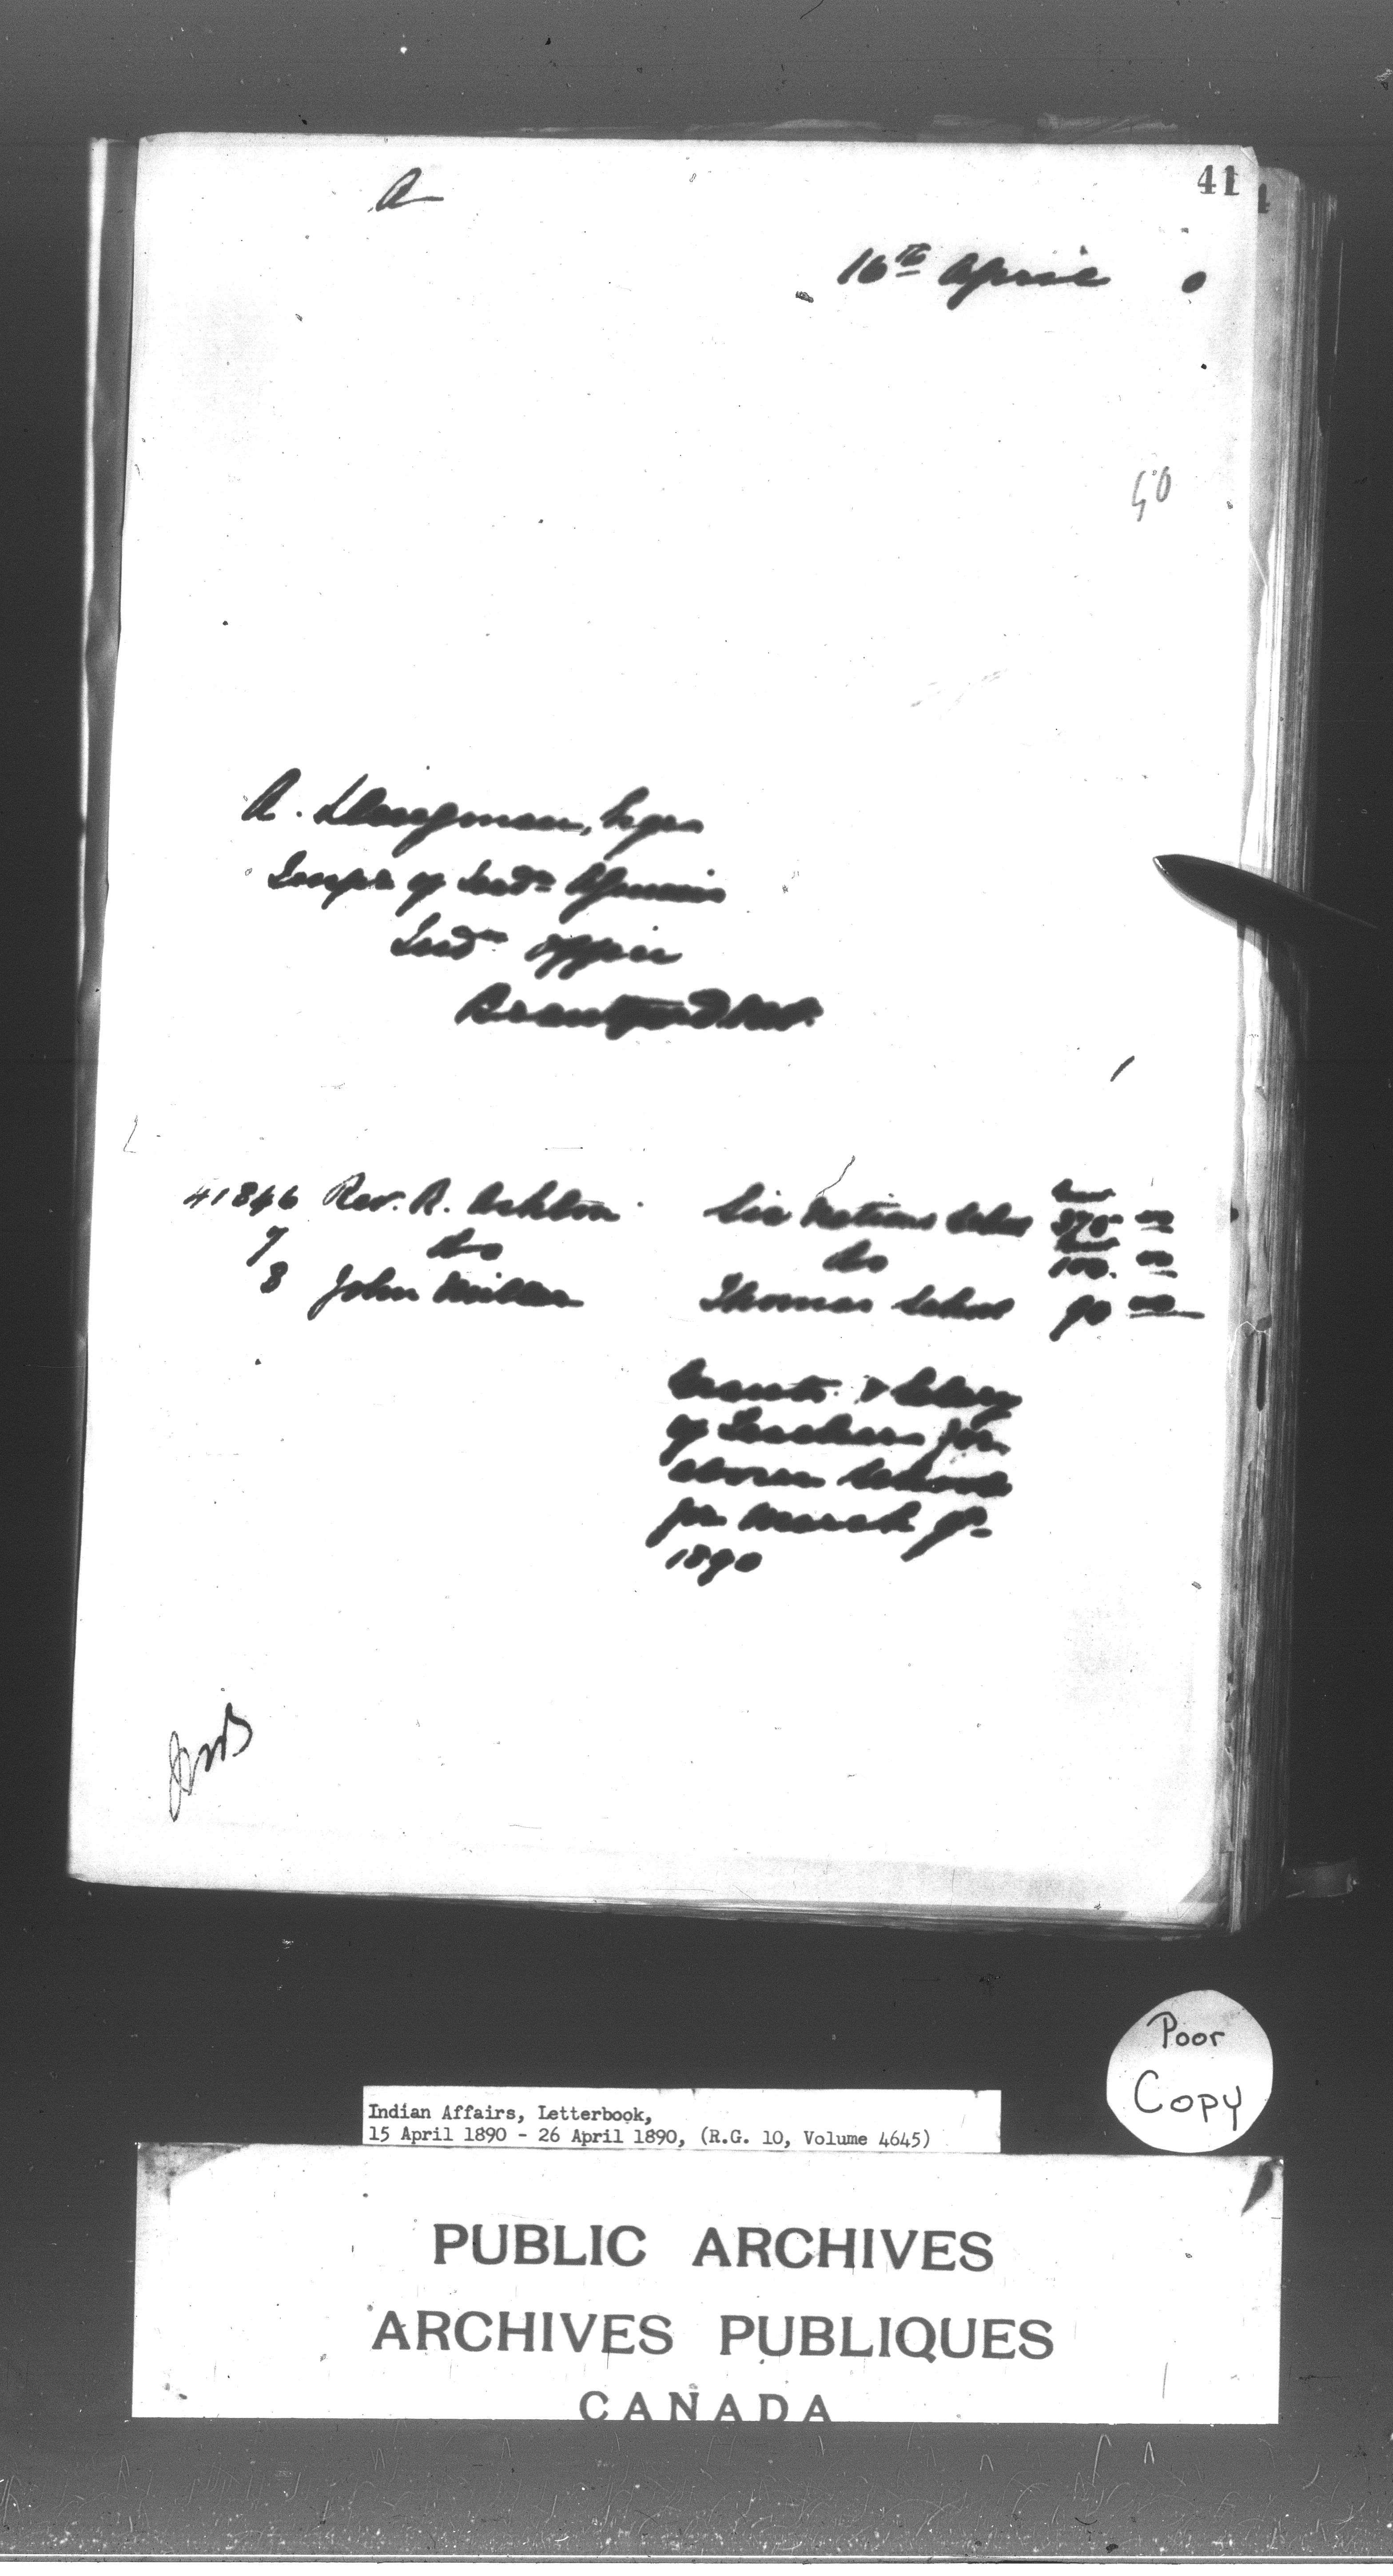 A
41
16th April 0
90
A. Dingman, Esqre
Inspr of Indn Agencies
Indn Office
Brantford Ont.
41846 Rev. R. Ashton Six Nations School Grant 375 00
7 do do Grant 100. 00
8 John Miller Thomas School 90 00
Grants & Salary
of Teachers for
above Schools
for March qr
1890
Poor
Copy
Indian Affairs, Letterbook,
15 April 1890 - 26 April 1890, (R.G. 10, Volume 4645)
PUBLIC ARCHIVES
ARCHIVES PUBLIQUES
CANADA